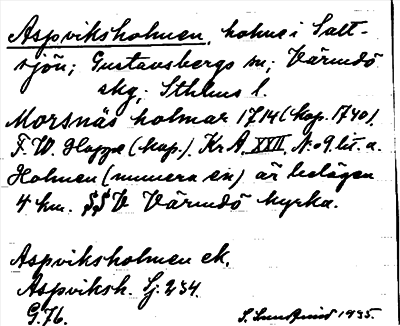 Aspviksholmen, holme i Salt-
sjön; Gustavsbergs sn; Värmdö
skg; Sthlms l.
Morsnäs holmar 1714 (kop. 1740).
F. W. Hoppe (kop.). Kr A. XXII. No 9. lit. a.
Holmen (numera en) är belägen
4 km. SSV Värmdö kyrka.
Aspviksholmen ek.
Aspviksh. Sj. 234.
G. 76.
S. 1935.